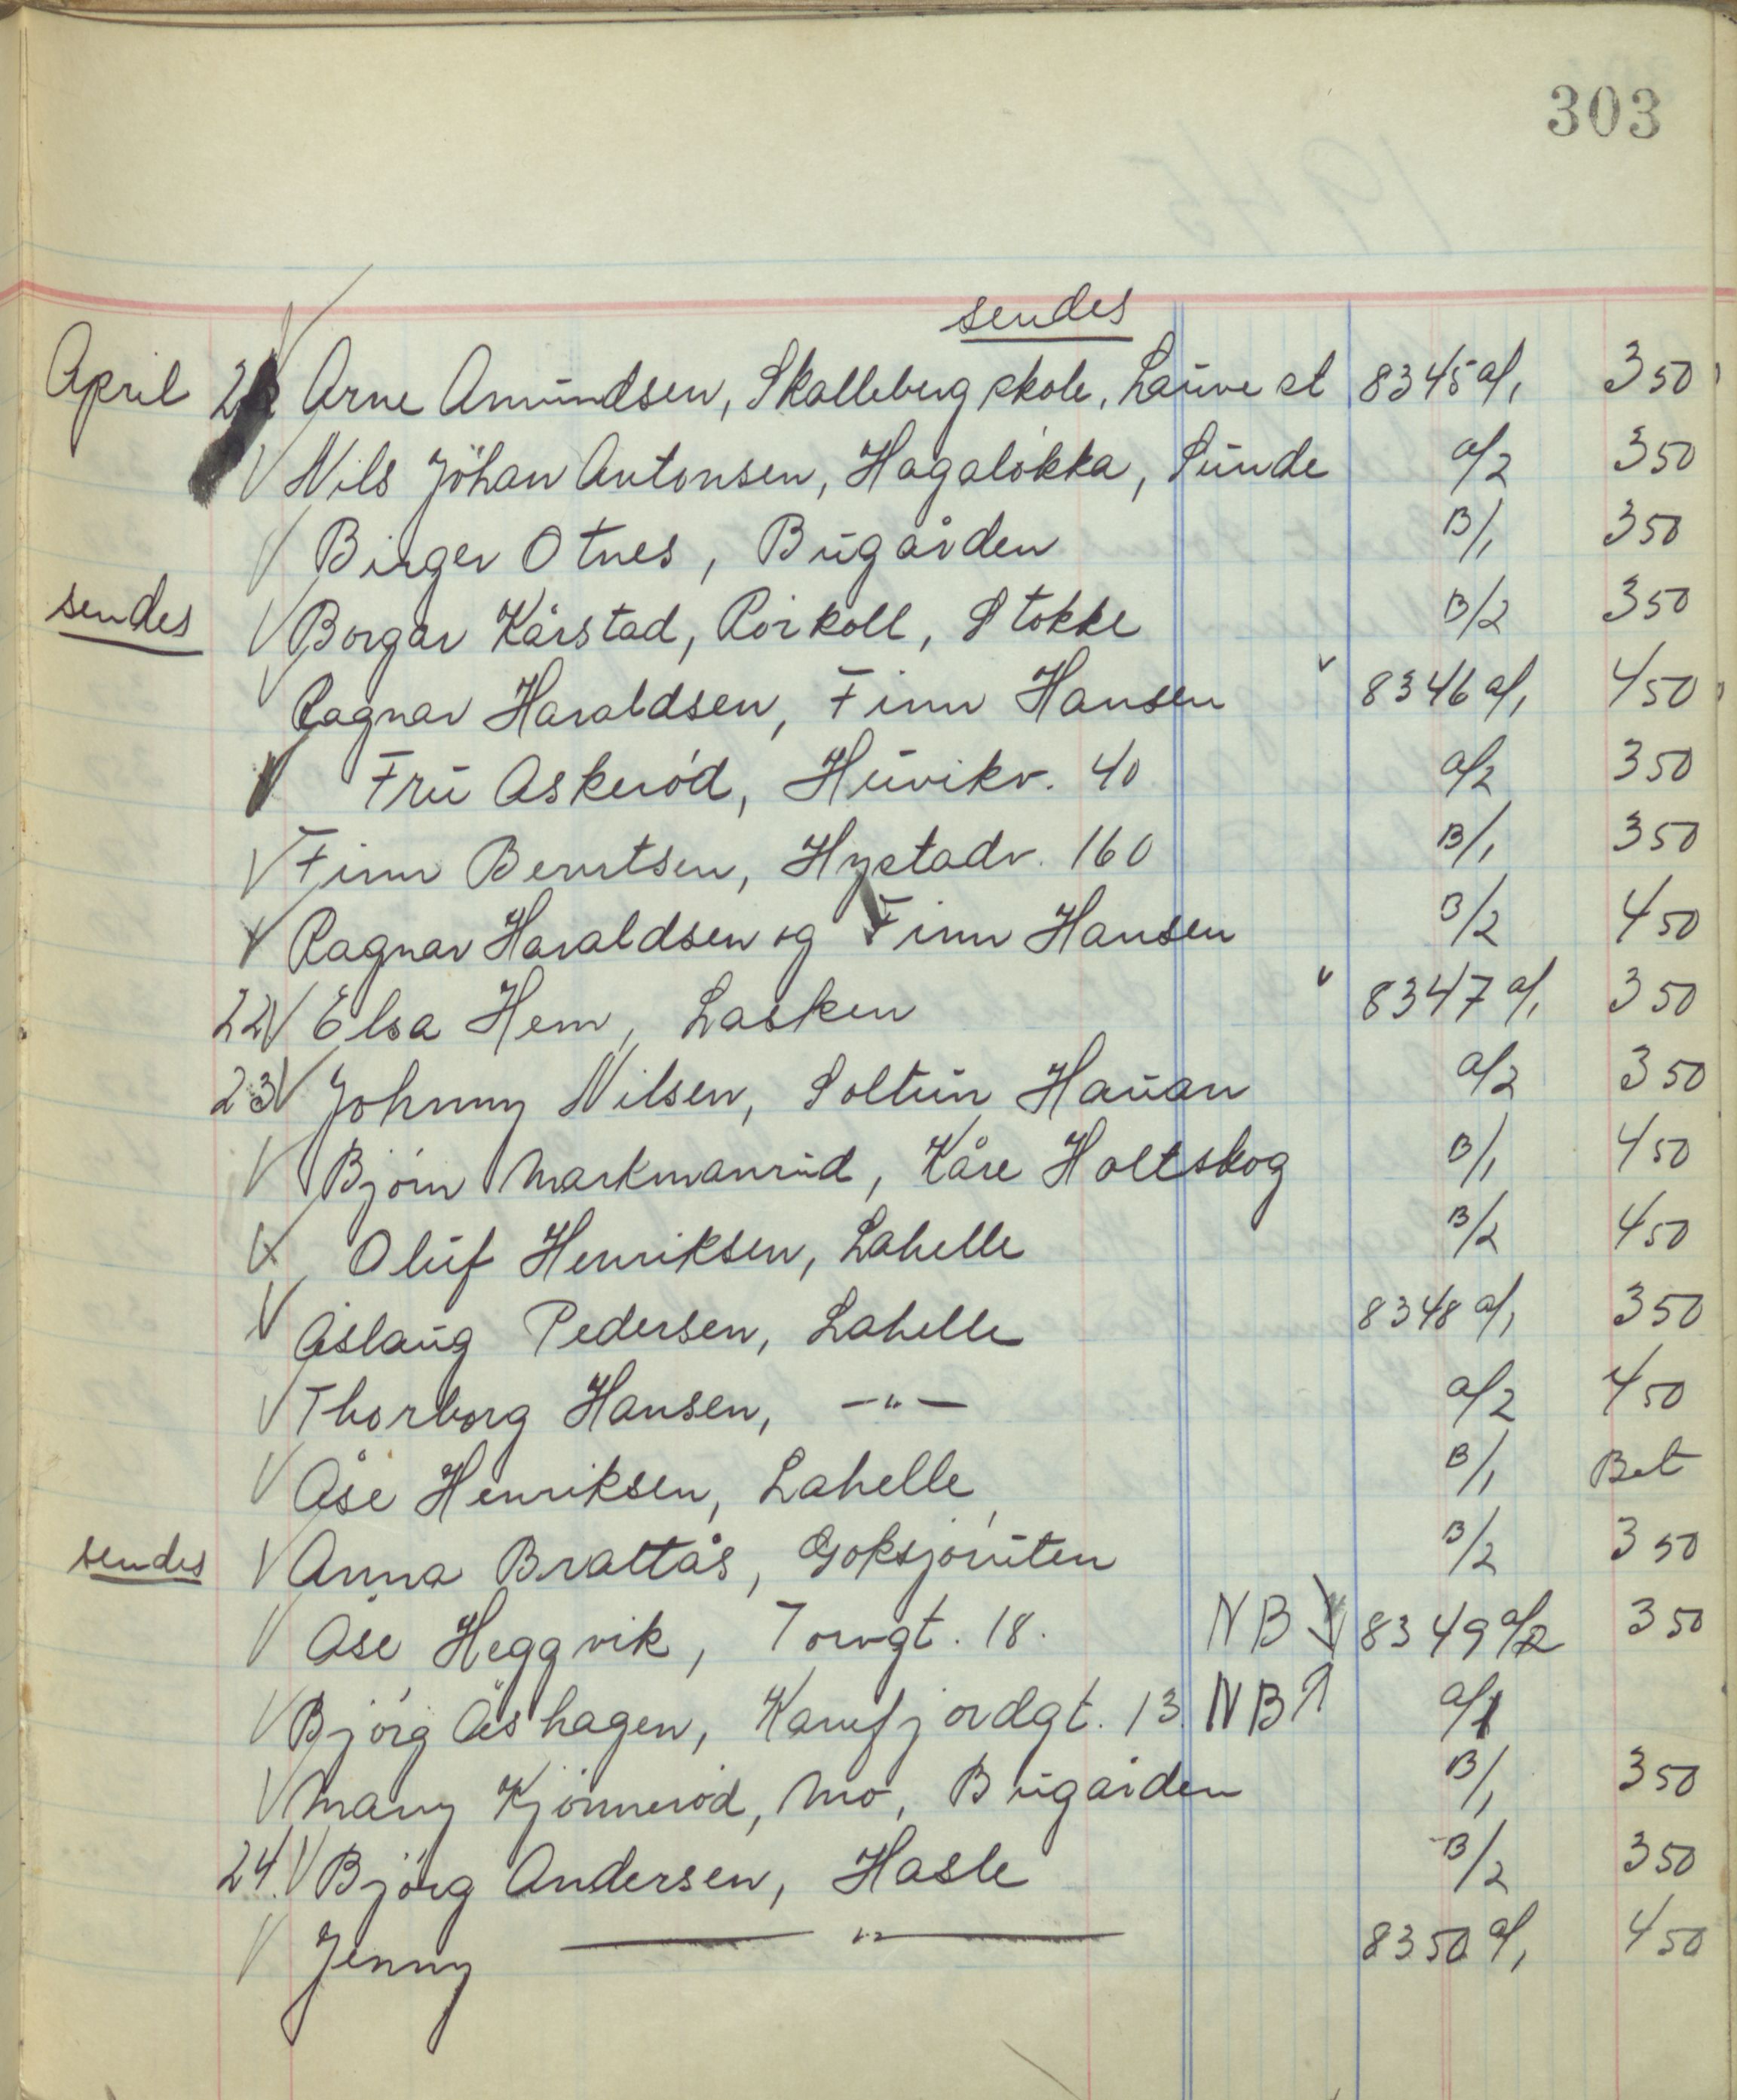 303
sendes
April 2 Arne Amundsen, Skalleberg skole, Lauve st 8345 a/1 350
Nils Johan Antonsen, Hagaløkka, Sunde a/2 350
Birger Otnes, Bugården B/1 350
sendes Borgar Kårstad, Rørkoll, Stokke B/2 350
Ragnar Haraldsen, Finn Hansen 8346 a/1 450
Fru Askerød, Huvikv. 40 a/2 350
Finn Berntsen, Hystadv. 160 B/1 350
Ragnar Haraldsen og Finn Hansen B/2 450
22 Elsa Hem, Lasken 8347 a/1 350
23 Johnny Nilsen, Soltun Hauan a/2 350
Bjørn Markmanrud, Kåre Holtskog B/1 450
Oluf Henriksen, Lahelle B/2 450
Åslaug Pedersen, Lahelle 8348 a/1 350
Thorborg Hansen, —"— a/2 450
Åse Henriksen, Lahelle B/1 Bet
sendes Anna Brattås, Goksjøruten B/2 350
Åse Heggvik, Torvgt. 18. NB 8349 a/2 350
Bjørg Åshagen, Kamfjordgt. 13. NB a/1
Mary Kjønnerød, Mo, Bugården B/1 350
24. Bjørg Andersen, Hasle B/2 350
Jenny —"— 8350 a/1 450